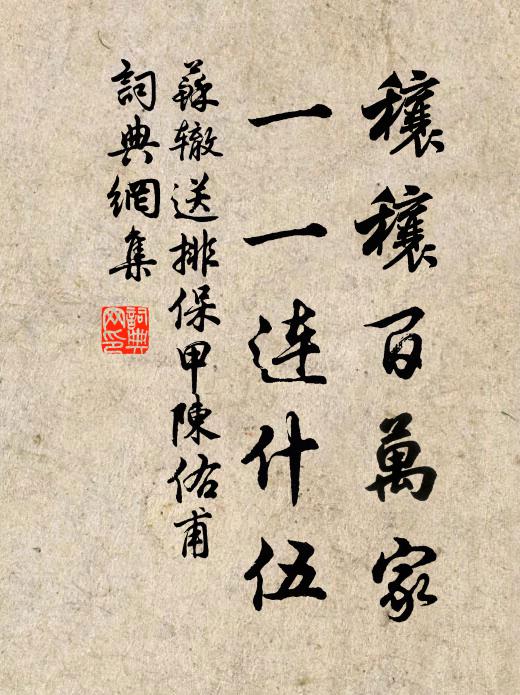 穰穰百萬家
一一連什伍
蘇辙送排保甲陳佑甫
詞典網集
詞典
网印